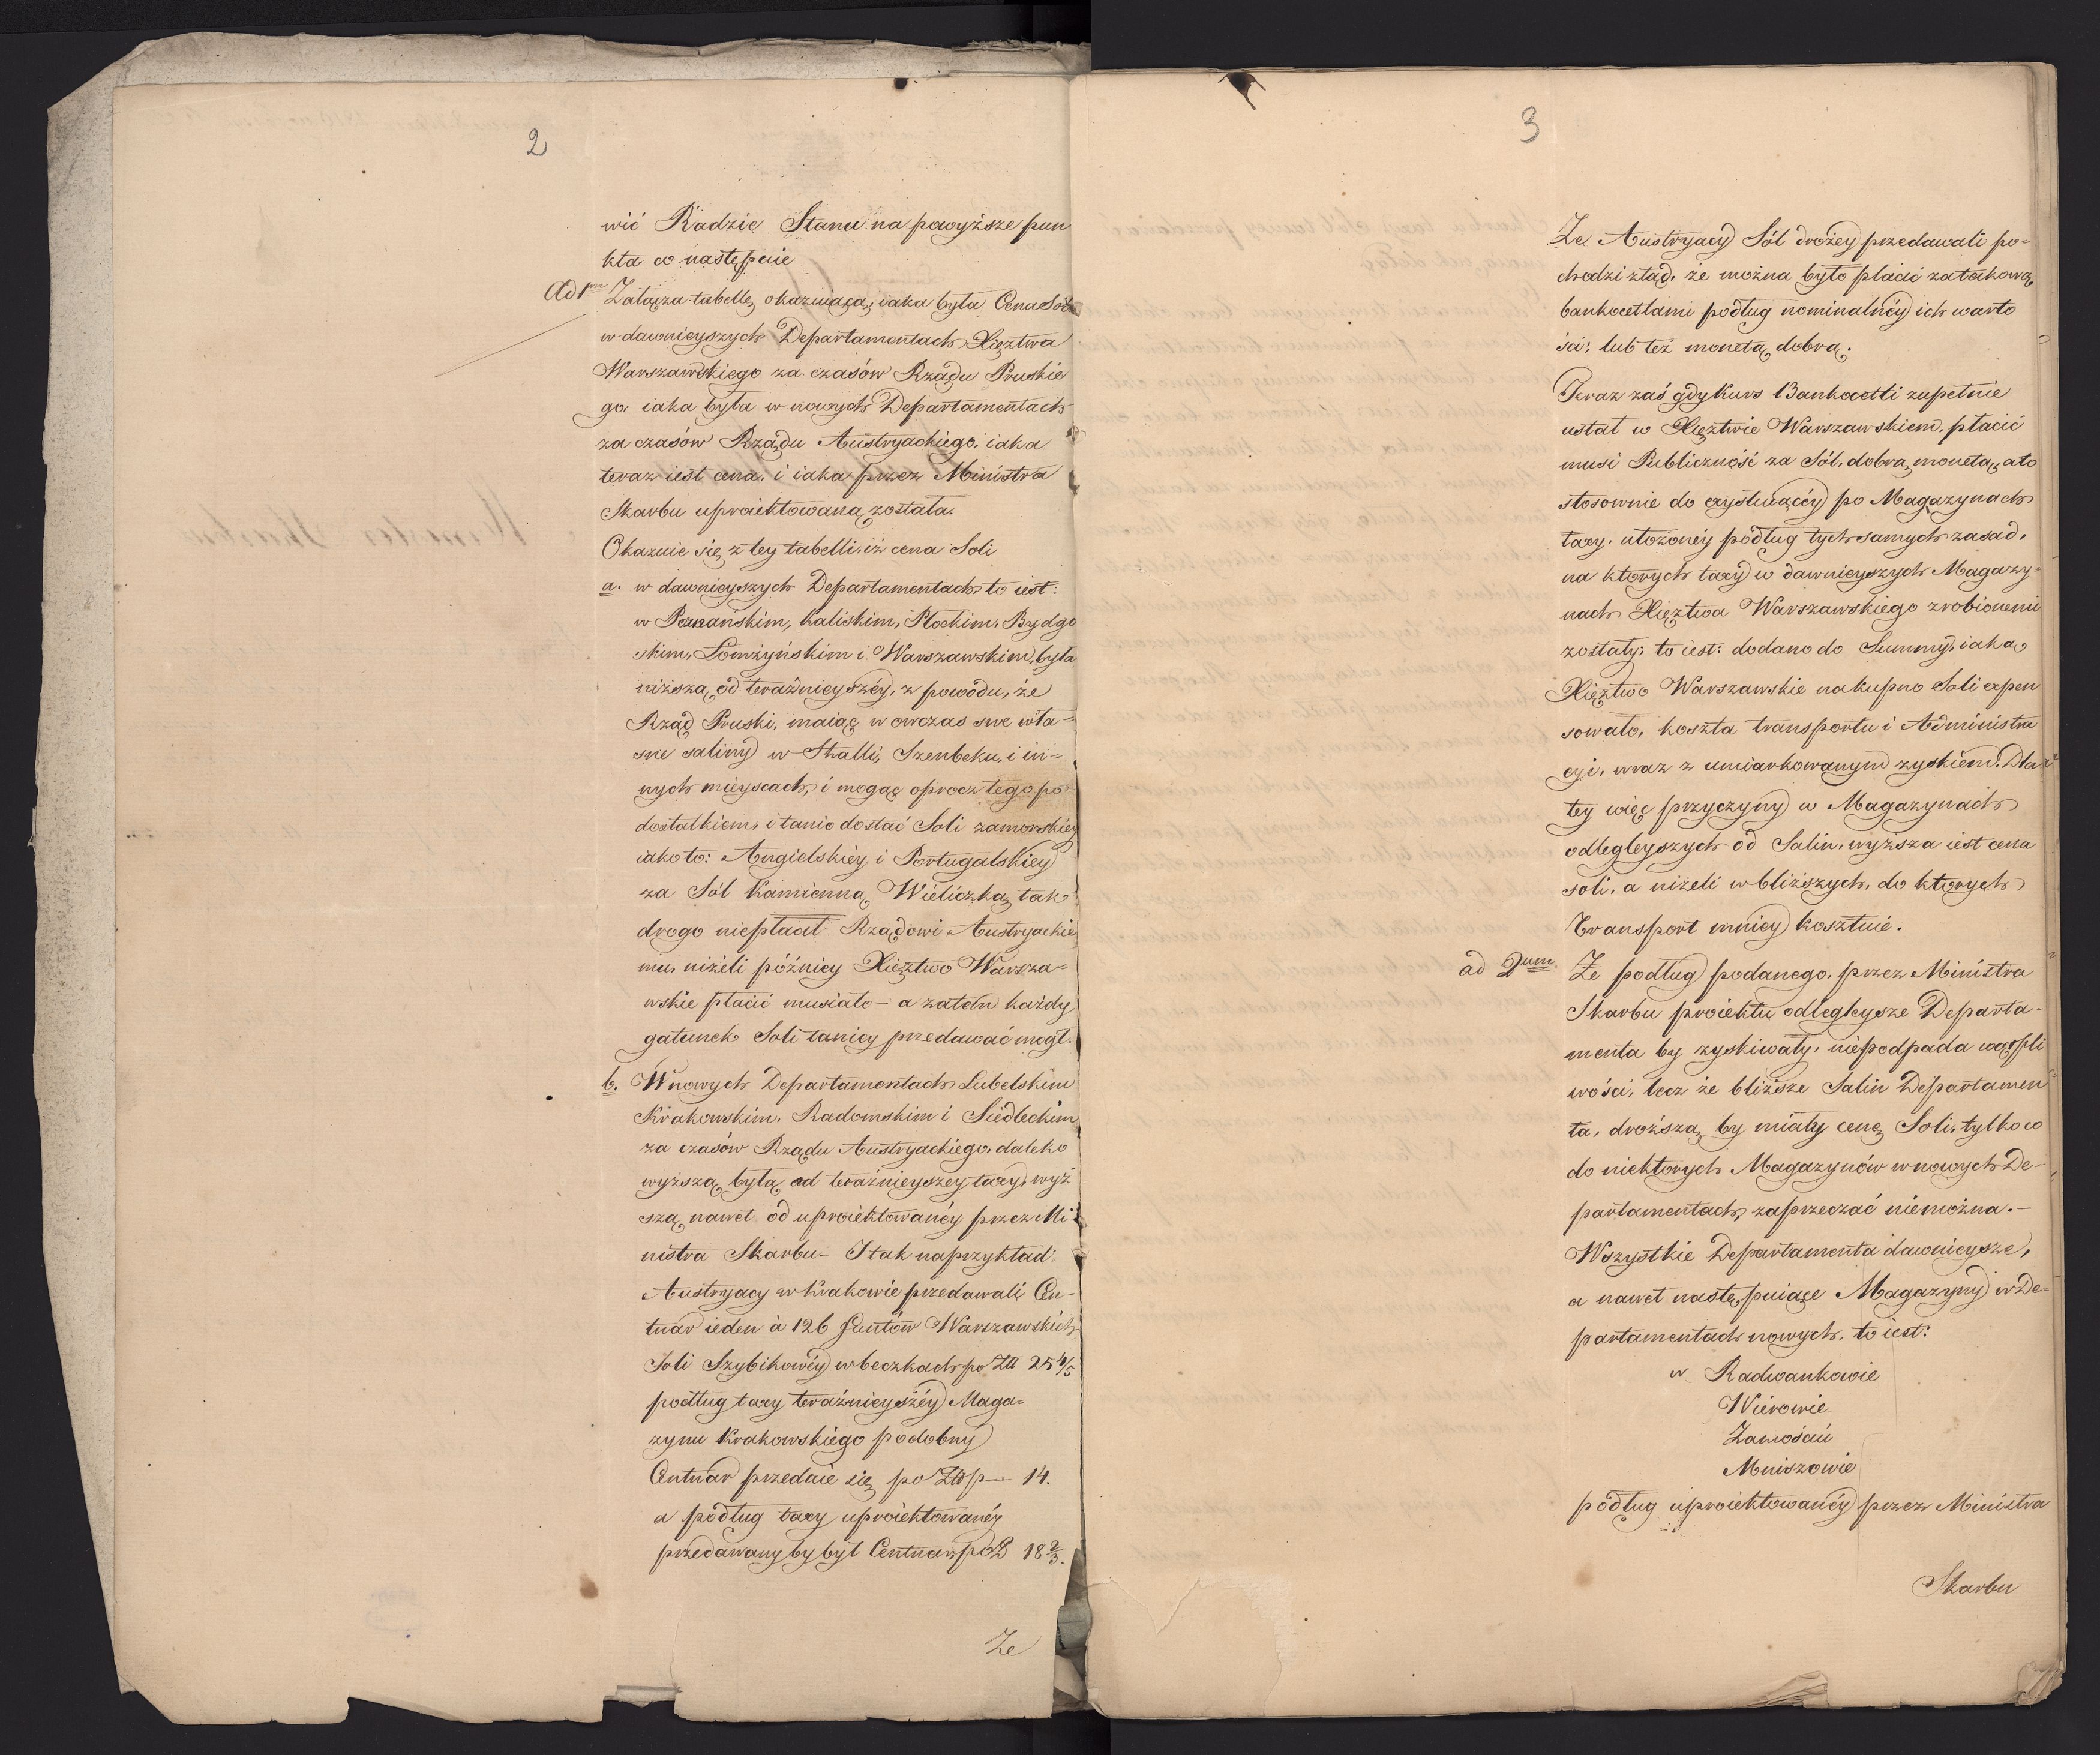 2
wić Radzie Stanu na powyższe pun
kta co następuie
Ad 1m Załącza tabellę okazuiącą, iaka była Cena Soli
w dawnieyszych Departamentach Xięztwa
Warszawskiego za czasów Rządu Pruskie
go, iaka była w nowych Departamentach
za czasów Rządu Austryackiego, iaka
teraz iest cena, i iaka przez Ministra
Skarbu uproiektowaną została.
Okazuie się z tey tabelli, iż cena Soli
a. w dawnieyszych Departamentach, to iest:
w Poznańskim, Kaliskim, Płockim, Bydgo
skim, Łomżyńskim i Warszawskim, była
niższą od teraźnieyszéy, z powodu, że
Rząd Pruski, maiąc wówczas swe wła=
sne saliny w Shalli, Szenbeku, i in=
nych mieyscach, i mogąc oprocz tego po
dostatkiem, i tanio dostać Soli zamorskiey
iako to: Angielskiéy i Portugalskiey
za Sól Kamienną Wieliczką tak
drogo niepłacił Rządowi Austryackie
mu, niżeli późniey Xięztwo Warsza=
wskie płacić musiało – a zatém każdy
gatunek Soli taniey przedawać mógł.
b. W nowych Departamentach Lubelskim
Krakowskim, Radomskim i Siedleckim
za czasów Rządu Austryackiego, daleko
wyższą była od teraźnieyszey taxy, wyż
szą nawet od uproiektowanéy przez Mi
nistra Skarbu – I tak naprzykład:
Austryacy w Krakowie przedawali Cen-
tnar ieden à 126 funtów Warszawskich
Soli Szybikowéy w beczkach po Złł 25 4/5
podług taxy teraźnieyszéy Maga=
zynu Krakowskiego podobny
Centnar przedaie się po Złłp – 14.
a podług taxy uproiektowanéy
przedawany by był Centnar po Z 18 2/3.
Że
3
Że Austryacy Sól drożey przedawali po=
chodzi ztąd, że można było płacić za takową
bankocetlami podług nominalnéy ich warto
ści, lub też monetą dobrą.
Teraz zaś gdy Kurs Bankocetli zupełnie
ustał w Xięztwie Warszawskiem, płacić
musi Publiczność za Sól, dobrą monetą, a to
stosownie do exystuiącéy po Magazynach
taxy, ułożonéy podług tych samych zasad,
na których taxy w dawnieyszych Magazy=
nach Xięztwa Warszawskiego zrobionemi
zostały, to iest: dodano do Summy, iaką
Xięztwo Warszawskie na kupno Soli expen
sowało, koszta transportu i Administra
cyi, wraz z umiarkowanym zyskiem. Dla
tey więc przyczyny w Magazynach
odlegleyszych od Salin, wyższa iest cena
soli, a niżeli w bliższych, do których
Transport mniey kosztuie.
ad 2um. Że podług podanego, przez Ministra
Skarbu proiektu odlegleysze Departa-
menta by zyskiwały, niepodpada wątpli
wości, lecz że bliższe Salin Departamen
ta, droższą by miały cenę Soli, tylko co
do niektorych Magazynów w nowych De-
partamentach, zaprzeczać niemożna. –
Wszystkie Departamenta dawnieysze,
a nawet następuiące Magazyny w De=
partamentach nowych, to iest:
w Radwankowie
Wierowie
Zamościu
Mniszowie
podług uproiektowanéy przez Ministra
Skarbu